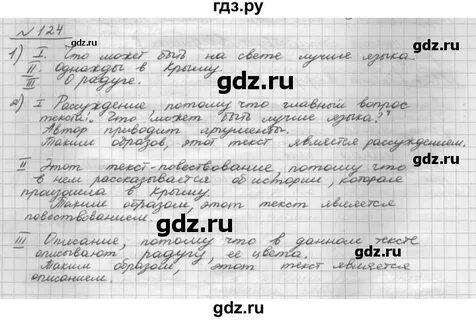 гдз.ру
№ 124
1) I. Что может быть на свете лучше языка.
II. Однажды в Крыму.
III О радуге.
2) I Рассуждение, потому что главный вопрос
текста: "Что может быть лучше языка?"
Автор приводит аргументы.
Таким образом, этот текст является рассуждением.
II Этот текст-повествование, потому что
в нем рассказывается об истории, которая
произошла в Крыму.
Таким образом, этот текст является
повествованием.
III Описание, потому что в данном тексте
описывают радугу, ее цвета.
Таким образом, этот текст является
описанием.
gdz.ru
gdz.ru
gdz.ru
gdz.ru
gdz.ru
gdz.ru